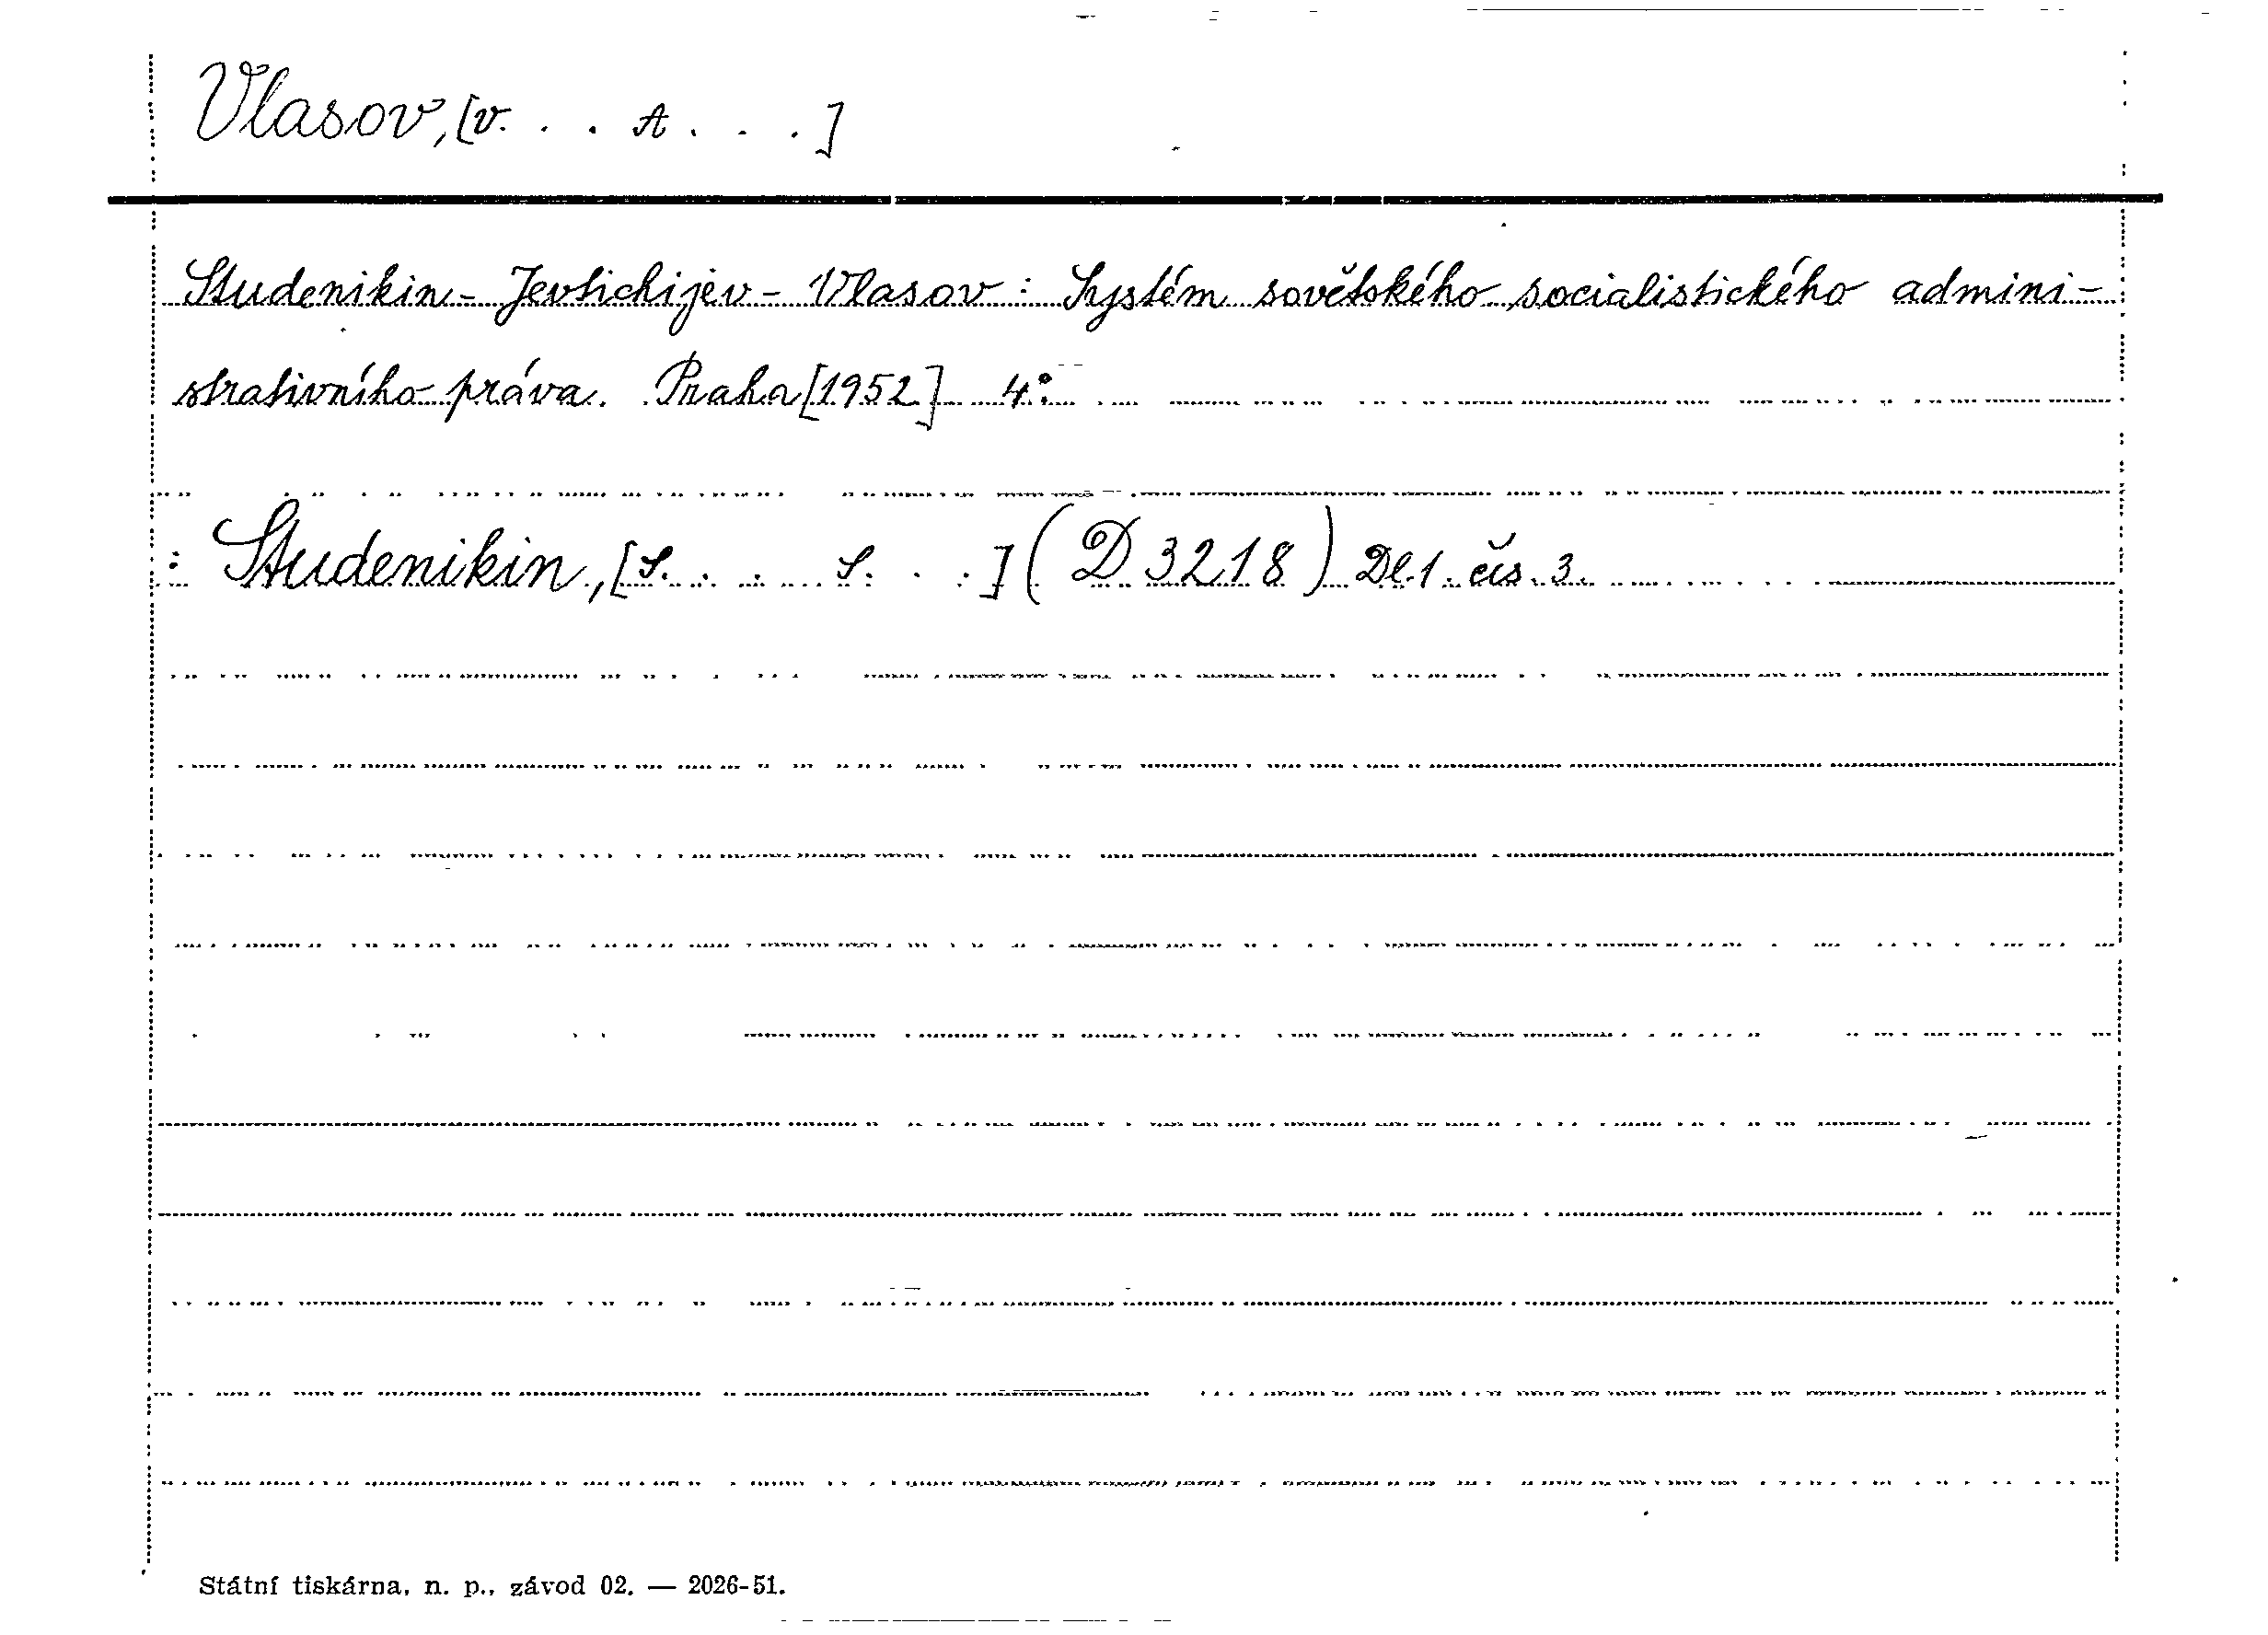 Vlasov, [V. . . A. . . .]
Studenikin - Jevtichijev - Vlasov : Systém sovětského socialistického admini-
strativního práva. Praha [1952] 4°.
: Studenikin, [S. . . . S. . . .] (D 3218) Dl. 1. čís. 3.
Státní tiskárna, n. p., závod 02. — 2026-51.